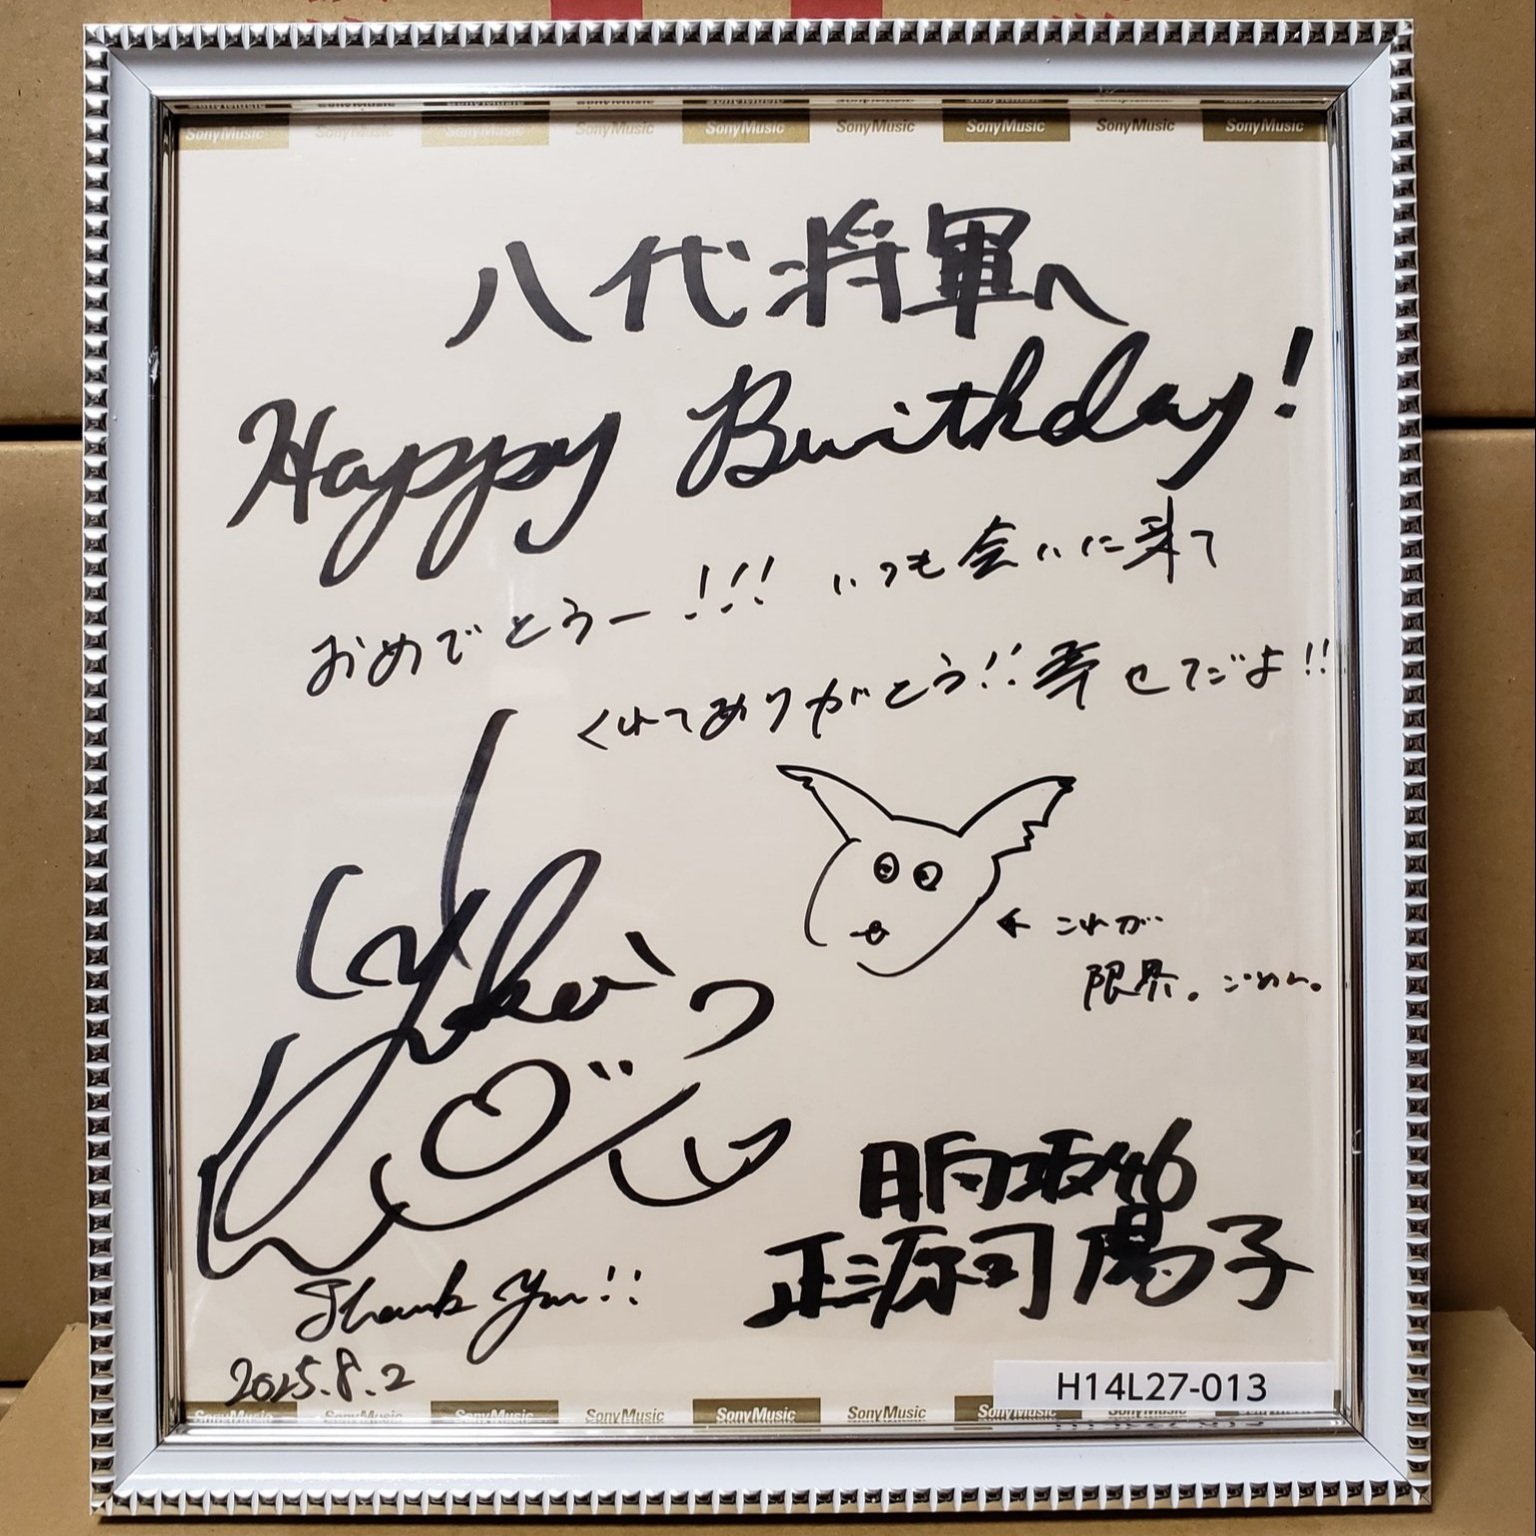 SonyMusic SonyMusic SonyMusic SonyMusic SonyMusic SonyMusic SonyMusic SonyMusic SonyMusic
八代将軍へ
Happy Buithday!
おめでとうー!!! いつも会いに来て
くれてありがとう!! 幸せだよ!!
← これが
限界。ごめん。
Yoko
日向坂46
正源司陽子
Thank you!!
2025.8.2
H14L27-013
SonyMusic SonyMusic SonyMusic SonyMusic SonyMusic SonyMusic SonyMusic SonyMusic